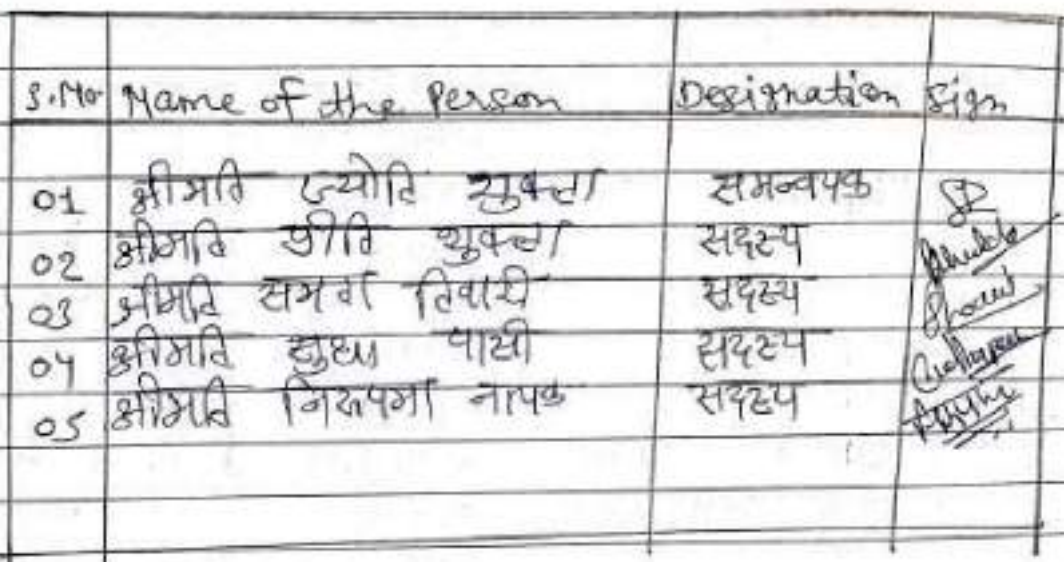 S.No Name of the Person Designation Sign
01 श्रीमति ज्योति शुक्ला समन्वयक
02 श्रीमति प्रीति शुक्ला सदस्य
03 श्रीमति तिवारी सदस्य
04 श्रीमति सुधा पासी सदस्य
05 श्रीमति निरूपमा नायक सदस्य